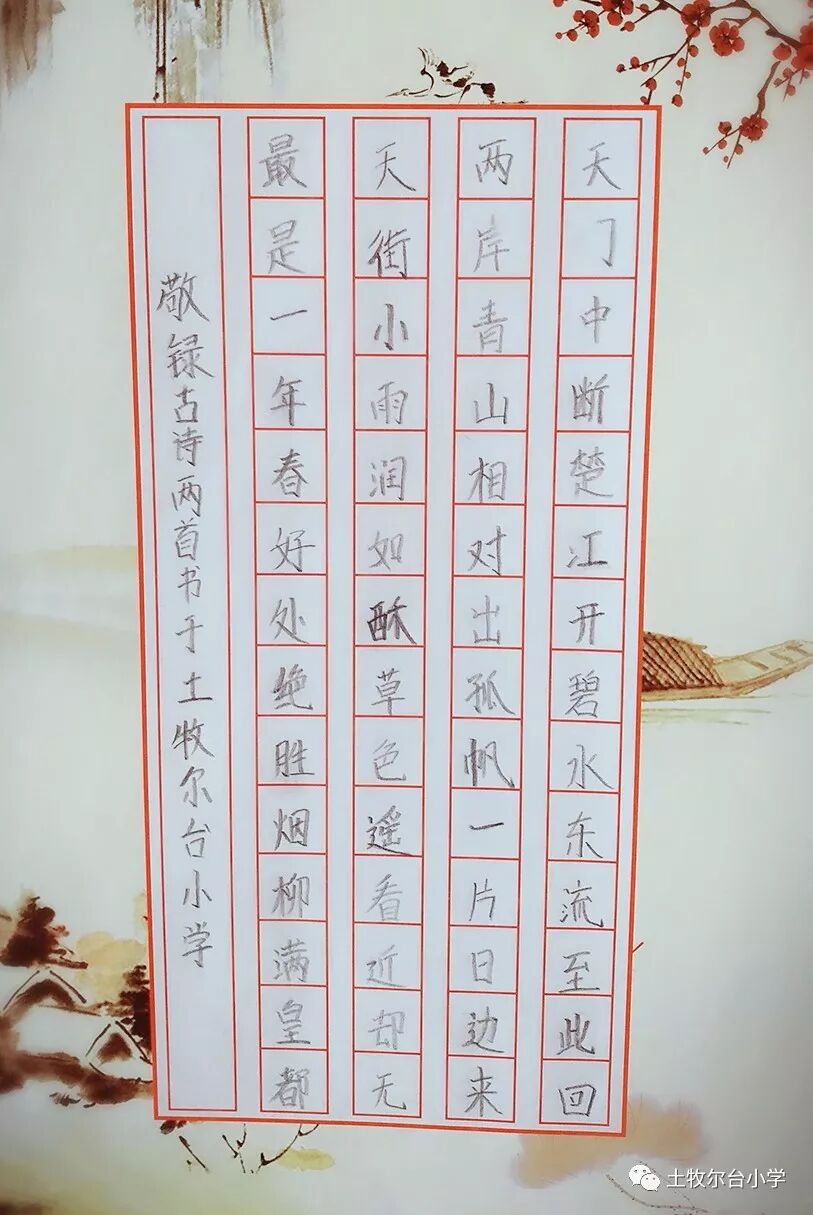 天门中断楚江开碧水东流至此回
两岸青山相对出孤帆一片日边来
天街小雨润如酥草色遥看近却无
最是一年春好处绝胜烟柳满皇都
敬録古诗两首书于土牧尔台小学
土牧尔台小学